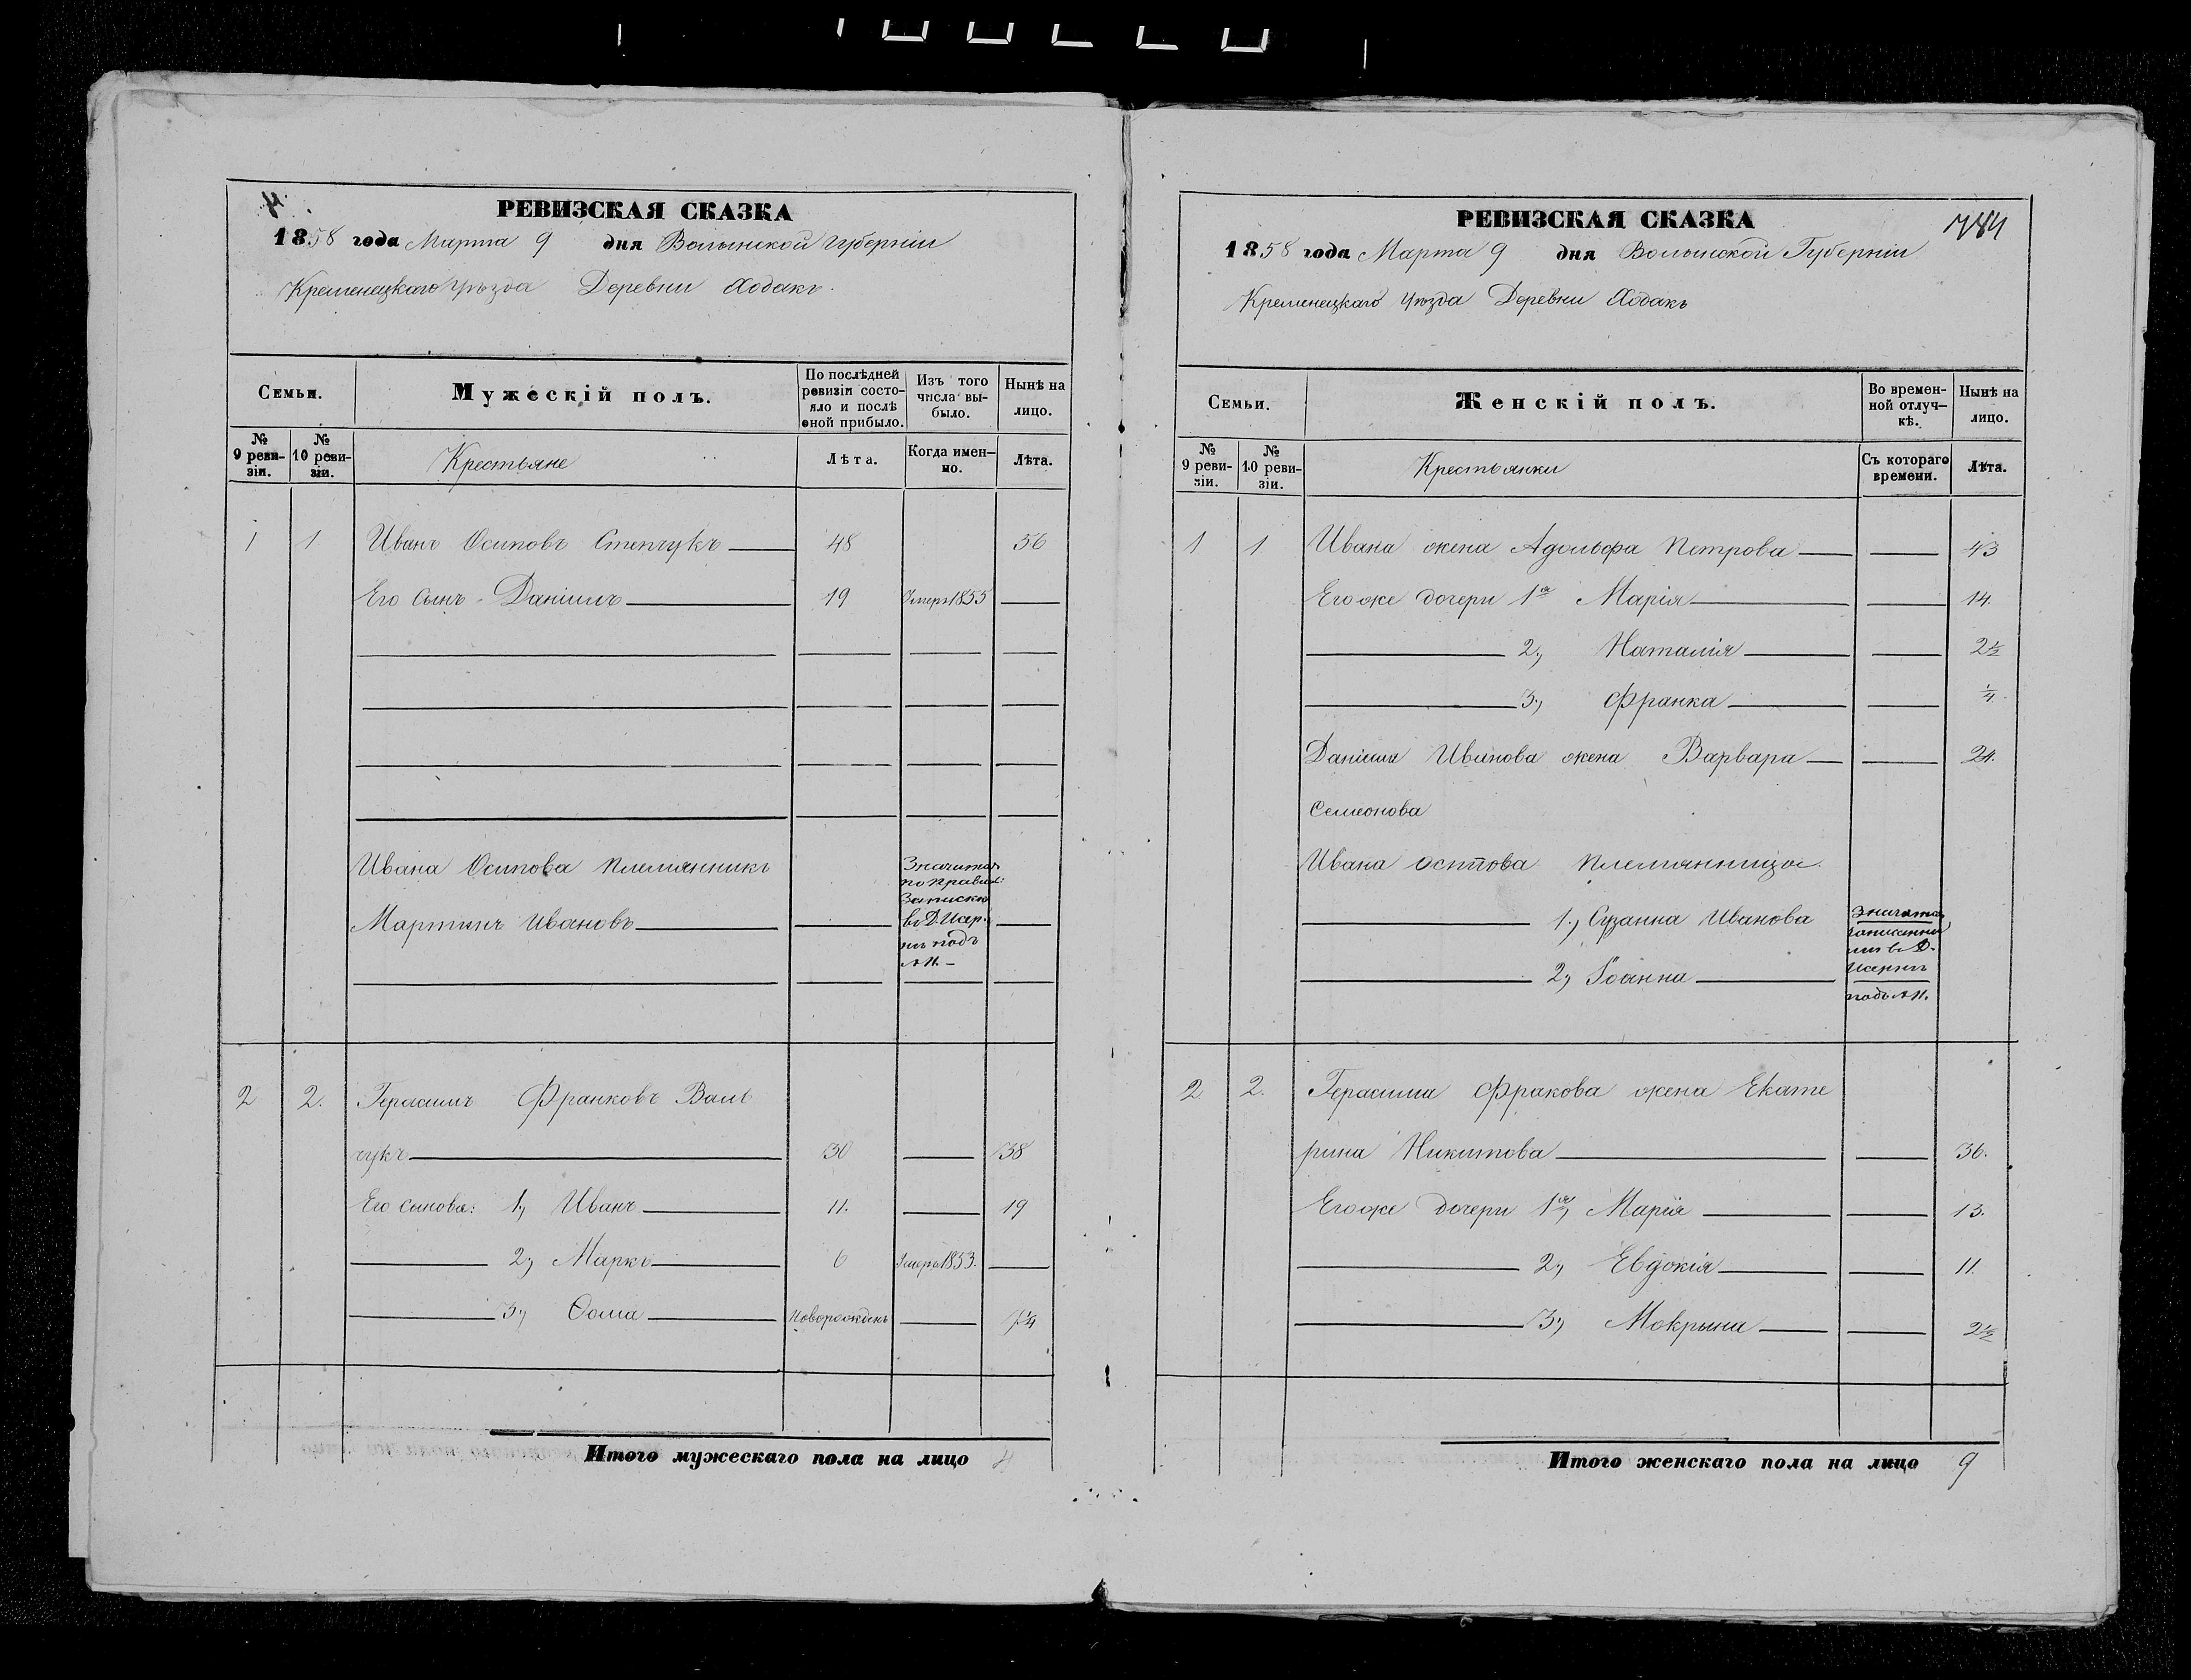 4.
РЕВИЗСКАЯ СКАЗКА
1858 года Марта 9 дня Волынской Губерніи
Кременецкаго Уѣзда Деревни Ходакъ.
Семьи.
Мужескій полъ.
По послѣдней ревизіи состо-
яло и послѣ
оной прибыло.
Изъ того
числа вы-
было.
Нынѣ на
лицо.
№
9 реви-
зіи.
№
10 реви-
зіи.
Крестьяне
Лѣта.
Когда имен-
но.
Лѣта.
1 1 Иванъ Осиповъ Степчукъ 48 56
Его Сынъ Даніилъ 19 Умеръ 1855
Ивана Осипова племянникъ
Мартинъ Ивановъ
Значится
по правил:
Записки
въ Д.
подъ
2 2. Герасимъ Франковъ Валь
чукъ 30 38
Его сыновья: 1, Иванъ 11. 19
2, Марко 6 Умеръ 1853.
3, Ѳома новорожденъ
Итого мужескаго пола на лицо 4
744
РЕВИЗСКАЯ СКАЗКА
1858 года Марта 9 дня Волынской Губерніи
Кременецкаго Уѣзда Деревни Ходакъ
Семьи.
Женскій полъ.
Во времен-
ной отлуч-
кѣ.
Нынѣ на
лицо.
№
9 реви-
зіи.
№
10 реви-
зіи.
Крестьянки
Съ котораго
времени.
Лѣта.
1 1 Ивана жена Адольфа Петрова 43
Его же дочери 1я Марія 14.
2, Наталія 2½
3, Франка ¼.
Даніила Иванова жена Варвара 24.
Семионова
Ивана Осипова племянницы.
1, Сузанна Иванова
2, Іоанна
Значатся
въ Д.
подъ
2 2. Герасима Фракова жена Екате
рина Никитова 36.
Его же дочери 1я, Марія 13.
2, Евдокія 11.
3, Мокрына 2½
Итого женскаго пола на лицо 9